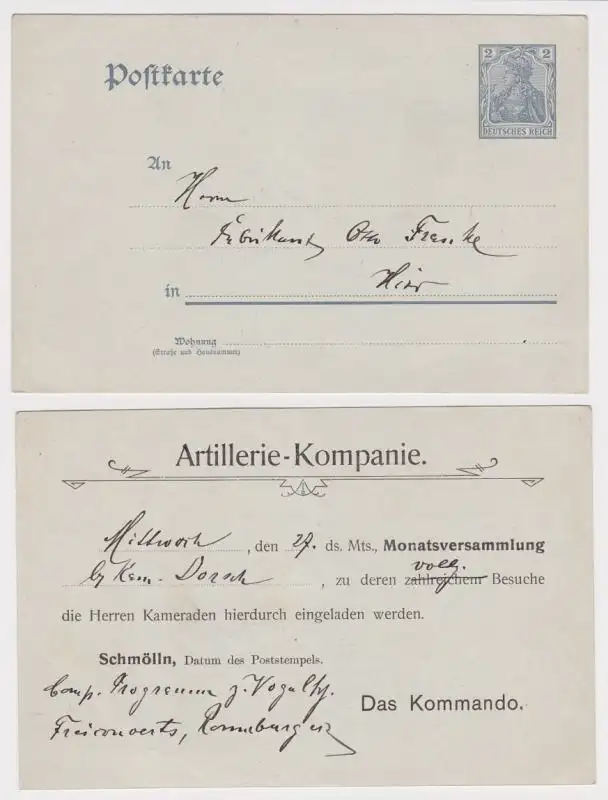 Postkarte
2 2
DEUTSCHES REICH
An
Herrn
Fabrikant Otto Franke
Hier
in
Wohnung
(Straße und Hausnummer)
Artillerie-Kompanie.
Mittwoch, den 27. ds. Mts., Monatsversammlung
vollz.
by Kam. Dorsch, zu deren zahlreichem Besuche
die Herren Kameraden hierdurch eingeladen werden.
Schmölln, Datum des Poststempels.
Comp. Programm z.
Das Kommando.
Freiconcerts, Ronneburg